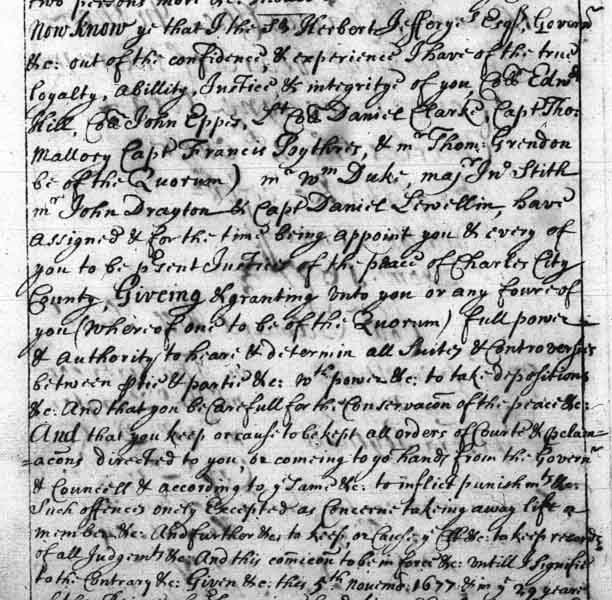 two persons more &c. 
Now know ye that I the sd Herbert Jefferyes Esqr, Governr
&c: out of the confidence, & experience I have of the true
loyalty, abillity, Justice & integritye of you, Coll Edwd
Hill, Coll John Eppes, Lt Coll Daniel Clarke, Capt Tho:
Mallory Capt Francis Poythres, & mr Thom: Grendon
be of the Quorum) mr Wm Duke, majr Jno Stith
mr John Drayton & Capt Daniel Lewellin, have
assigned & for the time being appoint you & every of
you to be psent Justices of the peace of Charles City
County, Giveing & granting unto you or any foure of
you (whereof one to be of the Quorum) full power
& authority to heare & determin all Suites & Controversies
between ptie & partie &c: wth power &c: to take depositions
&c: And that you be Carefull for the Conservacon of the peace &c:
And that you keep or cause to be kept all orders of Courte & pclam=
=acons directed to you, or comeing to yo hands from the Governr
& Councell & according to ye same &c: to inflict punishmts &c:
Such offences onely Excepted as Concerne takeing away life or
member &c: And further &c: to keep, or Cause ye Clk &c: to keep records
of all Judgemts &c: And this comicon to be in force &c: untill I signifie
to the Contrary &c: Given &c: this 5th Novemr 1677 & in ye 29 yeare